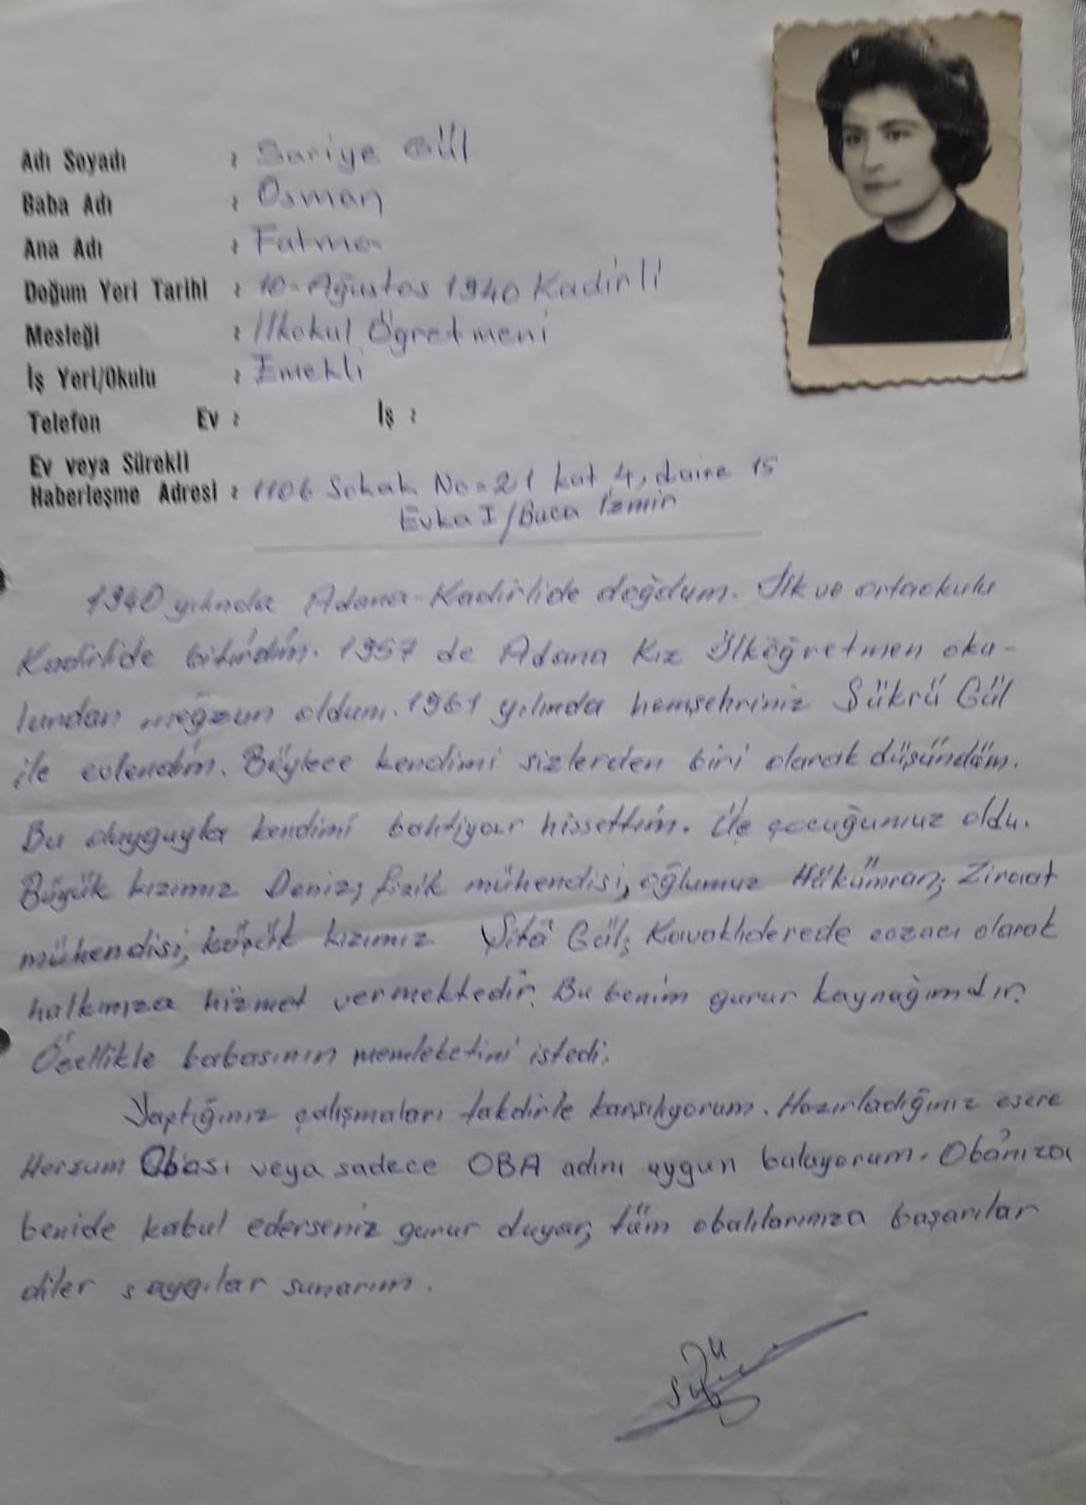 Adı Soyadı : Sariye Gül
Baba Adı : Osman
Ana Adı : Fatma
Doğum Yeri Tarihi : 10-Ağustos 1940 Kadirli
Mesleği : İlkokul Öğretmeni
İş Yeri/Okulu : Emekli
Telefon Ev : İş :
Ev veya Sürekli
Haberleşme Adresi : 1106 Sokak No=21 kat 4, daire 15
Evka I/Buca İzmir
1940 yılında Adana-Kadirlide doğdum. İlk ve ortaokulu
Kadirlide bitirdim. 1957 de Adana Kız İlköğretmen oku-
lundan meğzun oldum. 1961 yılında hemşehriniz Şükrü Gül
ile evlendim. Böylece kendimi sizlerden biri olarak düşündüm.
Bu duyguyla kendimi bahtiyar hissettim. Üç çocuğumuz oldu.
Büyük kızımız Deniz; fizik mühendisi, oğlumuz Hükümran; Ziraat
mühendisi, küçük kızımız Gül; Kavaklıderede eczacı olarak
halkımıza hizmet vermektedir. Bu benim gurur kaynağımdır.
Özellikle babasının memleketini istedi.
Yaptığınız çalışmaları takdirle karşılıyorum. Hazırladığınız esere
Horzum Obası veya sadece OBA adını uygun buluyorum. Obanıza
benide kabul ederseniz gurur duyar, tüm obalılarımıza başarılar
diler saygılar sunarım.